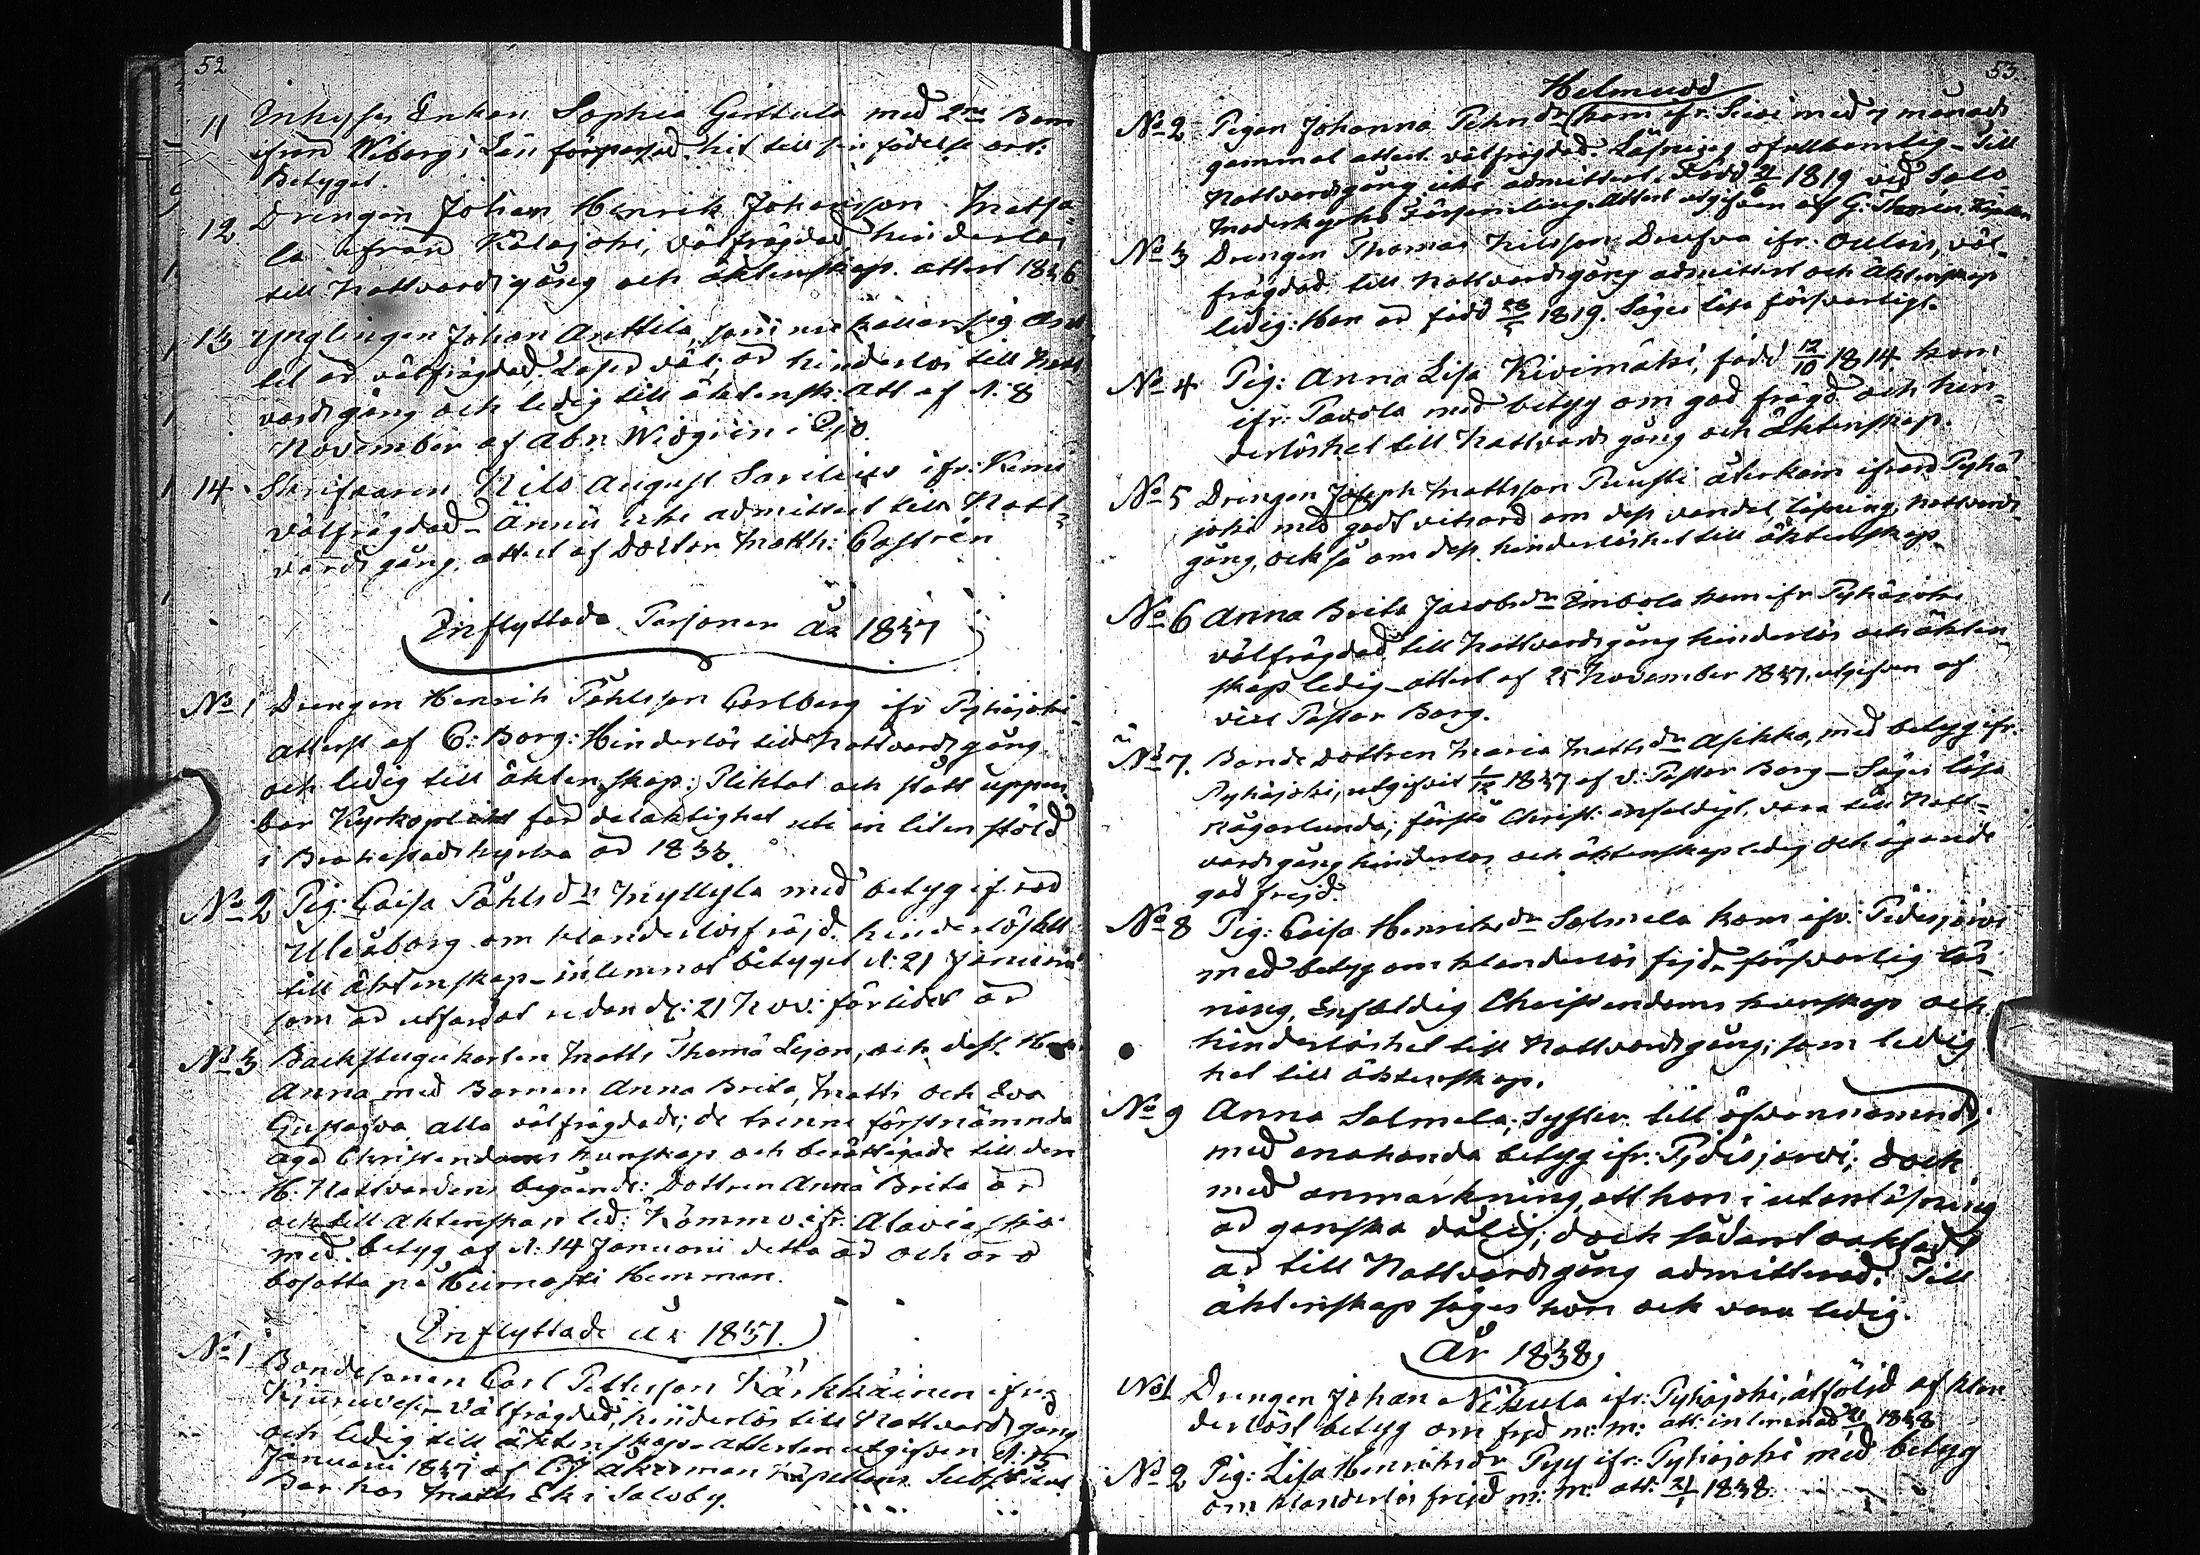 52
11 Inhyses Enkan Sophia Gertula med 2ne Barn
ifrån Wiborgs Län förpassad hit till sin födelse ort.
Betyget.
12 Drengen Johan Henrik Johansson Matsa-
la ifrån Kalajoki, välfrägdad, hinderlös
till Nattvardsgång och äktenskap. attest 1836
13 Ynglingen Johan Anttila, som nu kallar sig
är välfrägdad, Läser väl, är hinderlös till Natt-
vardsgång och ledig till äktensk: Att af d. 8
November af Abr. Widgren i Pyo.
14. Skrifvaren Nils August Sarelius ifr: Kemi
välfrägdad – Ännu icke admitterad till Natt-
vardsgång. attest af Doctor Matth: Castrén
Inflyttade Personer År 1837
No 1 Drengen Henrik Påhlsson Carlberg ifr Pyhäjoki
attest af C: Borg: Hinderlös till Nattvardsgång
och ledig till äktenskap: Pliktat och stått uppen-
bar Kyrkoplikt för delaktighet uti en liten stöld
i Brahestads kyrka år 1833.
No 2 Pig: Caisa Påhlsdr Myllylä med betyg ifrån
Uleåborg om klanderlös fräjd. hinderlöshet
till äktenskap – inlemnat betyget d: 21 Januarii
som är utfärdat redan d: 21 Nov: förlidet år
No 3 Backstugukarlen Matts Thomæ Lejon, och dess H
Anna med Barnen Anna Brita, Matts och Eva
Gustafva alla välfrägdade; de trenne förstnämnda
äga Christendoms kunskap och berättigade till den
H. Nattvardens begående: Dottren Anna Brita är
ock till äktenskap led: Kommo ifr: Alavieska
med betyg af d. 14 Januarii detta år och äro
bosatta på Hemman.
Inflyttade År 1837.
No 1 Bondesonen Carl Pettersson Kärkkäinen ifrå
Kiuruvesi – Välfrägdad, hinderlös till Nattvardsgång
och ledig till äktenskap – attesten utgifven d. 15
Januarii 1837 af C.J. Åkerman Kapellans Substitut
Bor hos Matts Ek i Saloby.
53.
Helmudd
No 2 Pigan Johanna dr kom ifr: Sievi med 7 månads
gammal attest välfrägdad. Läsning ofullkomlig – Till
Nattvardsgång icke admitterad. Född 1819 vid Salo
Moderkyrko Församling. Attest utgifven af G. Thoren
No 3 Drengen Thomas Nilsson ifr: Oulais, väl-
frägdad till Nattvardsgång admitterad och äktenskap
ledig: Han är född 1819. Säges läsa försvarligt.
No 4 Pig: Anna Lisa Kivimäki, född 12/10 1814. kom
ifr: Pavola med betyg om god frägd och hin-
derlöshet till Nattvardsgång och Äktenskap.
No 5 Drengen Joseph Mattsson Puusti återkom ifrån Pyhä-
joki med godt vitsord om dess vandel, läsning, nattvards-
gång, ock så om dess hinderlöshet till äktenskap.
No 6 Anna Brita Jacobsdr kom ifr Pyhäjoki
välfrägdad till Nattvardsgång hinderlös och äkten-
skap ledig – attest af 25 November 1837. utgifven af
vice Pastor Borg.
No 7. Bondedottren Maria Mattsdr med betyg ifr:
Pyhäjoki, utgifvit 1/12 1837 af v. Pastor Borg – Säges läsa
någorlunda; förstå Christ: enfaldigt. vara till Natt-
vardsgång hinderlös och äktenskap ledig och ägande
god frejd.
No 8 Pig: Caisa Henriksdr Salmela kom ifr: Pidisjärvi
med betyg om klanderlös frejd – försvarlig läs-
ning, Enfaldig Christendoms kunskap och
hinderlöshet till Nattvardsgång; som ledig-
het till äktenskap.
No 9 Anna Salmela, Syster till ofvannämnde;
med enahanda betyg ifr: Pidisjärvi; dock
med anmärkning, att hon i utanläsning
är ganska dålig; dock sådant oaktadt
är till Nattvardsgång admitterad. Till
äktenskap säges hon ock vara ledig.
År 1838
No 1 Drengen Johan Nikula ifr: Pyhäjoki, åtföljd af klan-
derlöst betyg om frejd m: m: att: inlemnad 1838
No 2 Pig: Lisa Henriksdr Pyy ifr: Pyhäjoki med betyg
om klanderlös frejd m: m: att: 21/1 1838.